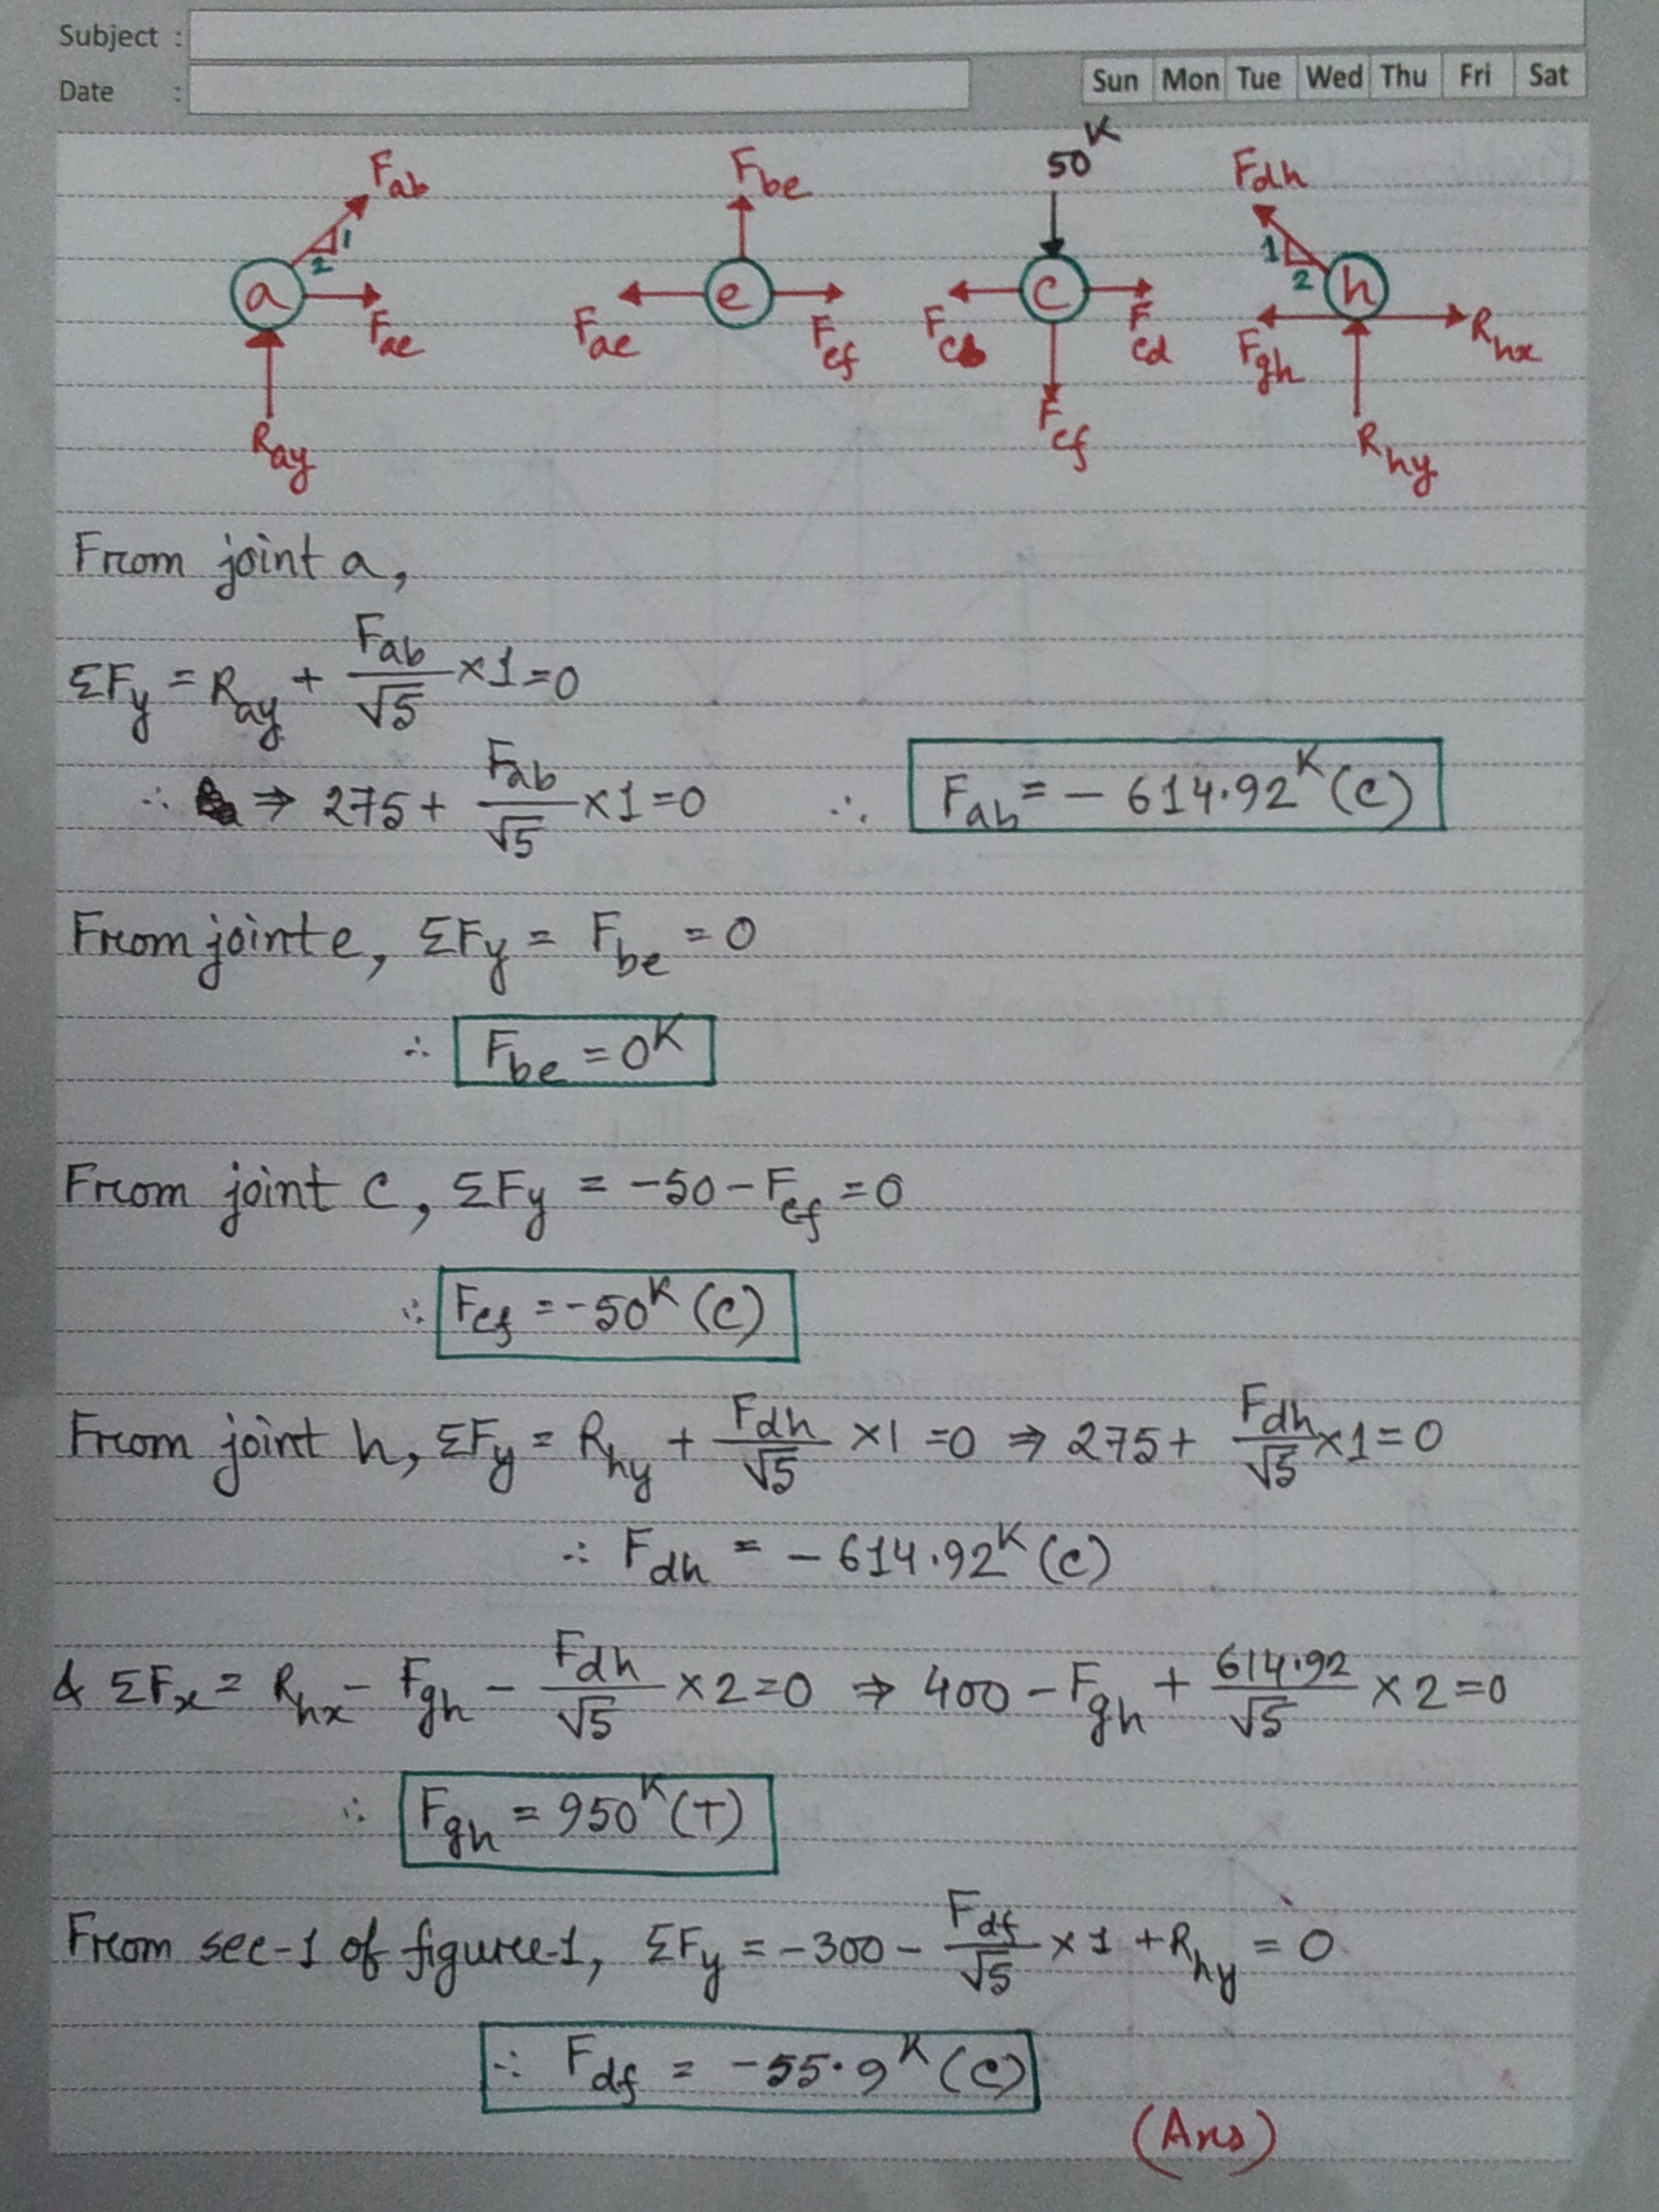 Subject :
Date :
Sun Mon Tue Wed Thu Fri Sat
F_ab 1 2 a F_ae R_ay
F_be F_ae e F_ef
50^K F_cb c F_cd F_cf
F_dh 1 2 h F_gh R_hx R_hy
From joint a,
ΣF_y = R_ay + F_ab/√5 ×1=0
∴ ⇒ 275+ F_ab/√5 ×1=0 ∴ F_ab = - 614.92^K (C)
From joint e, ΣF_y = F_be = 0
∴ F_be = 0^K
From joint c, ΣF_y = -50-F_cf = 0
∴ F_cf = -50^K (C)
From joint h, ΣF_y = R_hy + F_dh/√5 ×1 =0 ⇒ 275+ F_dh/√5 ×1=0
∴ F_dh = - 614.92^K (C)
& ΣF_x = R_hx - F_gh - F_dh/√5 ×2=0 ⇒ 400 - F_gh + 614.92/√5 ×2=0
∴ F_gh = 950^K (T)
From sec-1 of figure-1, ΣF_y = -300- F_df/√5 ×1 +R_hy = 0
∴ F_df = -55.9^K (C)
(Ans)